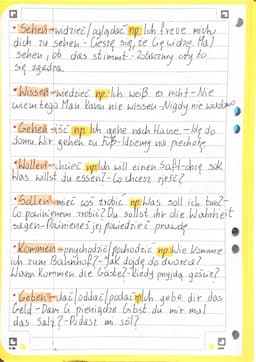 • Sehen - widzieć/oglądać np. Ich freue mich
dich zu sehen - Cieszę się, że Cię widzę. Mal
sehen, ob das stimmt - Zobaczmy czy to
się zgadza
• Wissen - wiedzieć np. Ich weiß es nicht - Nie
wiem tego. Man kann nie wissen - Nigdy nie wiadomo
• Gehen - iść np. Ich gehe nach Hause - Idę do
domu. Wir gehen zu Fuß - Idziemy na piechotę
• Wollen - chcieć np. Ich will einen Saft - chcę sok
Was willst du essen? - Co chcesz zjeść?
• Sollen - mieć coś zrobić np. Was soll ich tun? -
Co powinienem zrobić? Du sollst ihr die Wahrheit
sagen - Powinieneś jej powiedzieć prawdę
• Kommen - przychodzić/pochodzić np. Wie komme
ich zum Bahnhof? - Jak dojdę do dworca?
Wann kommen die Gäste? - Kiedy przyjdą goście?
• Geben - dać/oddać/podać np. Ich gebe dir das
Geld - Dam Ci pieniądze Gibst du mir mal
das Salz? - Podasz mi sól?